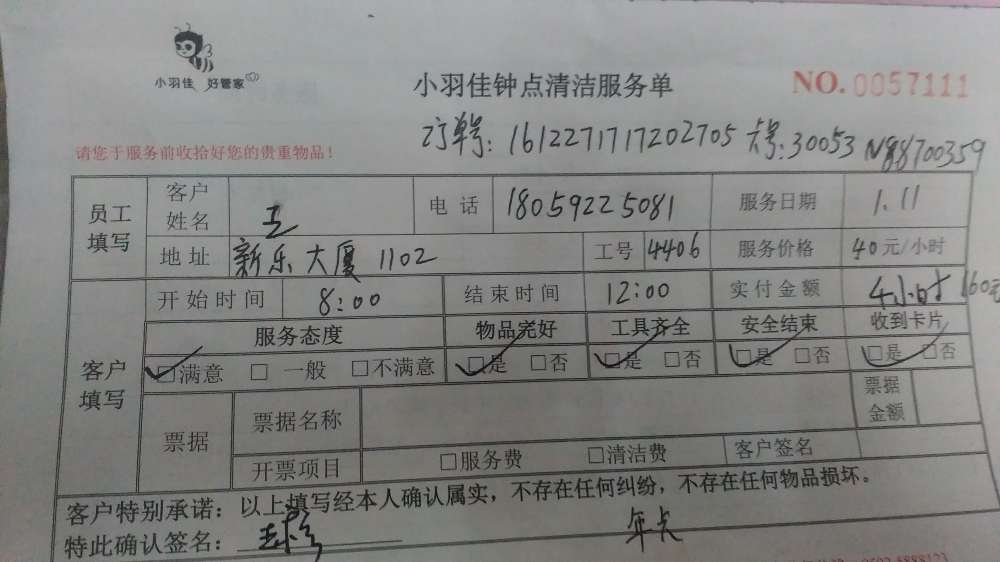 小羽佳 好管家
小羽佳钟点清洁服务单
NO.0057111
订单号：1612271717202705 卡号：30053 N88700359
请您于服务前收拾好您的贵重物品！
员工填写 客户姓名 王 电话 18059225081 服务日期 1.11
地址 新乐大厦 1102 工号 4406 服务价格 40元/小时
客户填写 开始时间 8:00 结束时间 12:00 实付金额 4小时 160元
服务态度 物品完好 工具齐全 安全结束 收到卡片
☑满意 □ 一般 □不满意 ☑是 □否 ☑是 □否 ☑是 □否 ☑是 □否
票据 票据名称 票据金额
开票项目 □服务费 □清洁费 客户签名
客户特别承诺：以上填写经本人确认属实，不存在任何纠纷，不存在任何物品损坏。
特此确认签名： 年卡